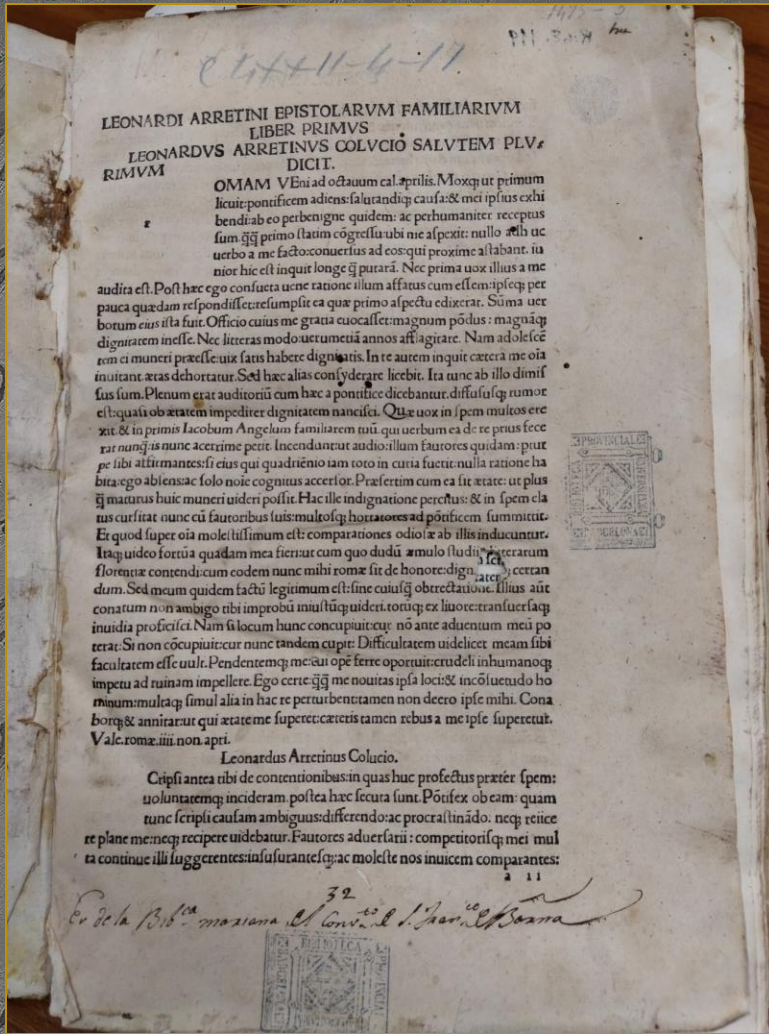 LEONARDI ARRETINI EPISTOLARVM FAMILIARIVM
LIBER PRIMVS
LEONARDVS ARRETINVS COLVCIO SALVTEM PLV
RIMVM DICIT.
OMAM VEni ad octauum cal. aprilis. Moxq; ut primum
licuit: pontificem adiens: salutandiq; causa: & mei ipsius exhi
bendi: ab eo perbenigne quidem: ac perhumaniter receptus
r
sum. q̄q̄ primo statim cōgressu: ubi me aspexit: nullo adh uc
uerbo a me facto: conuersus ad eos: qui proxime astabant. iu
nior hic est inquit longe q̄ putarā. Nec prima uox illius a me
audita est. Post hæc ego consueta uene ratione illum affatus cum essem: ipseq; per
pauca quædam respondisset: resumpsit ea quæ primo aspectu edixerat. Sūma uer
borum eius ista fuit. Officio cuius me gratia euocasset: magnum pōdus: magnāq;
dignitatem inesse. Nec litteras modo: uerumetiā annos afflagitare. Nam adolescē
tem ei muneri præesse: uix satis habere dignitatis. In te autem inquit cætera me oīa
inuitant. ætas dehortatur. Sed hæc alias consyderare licebit. Ita tunc ab illo dimis
sus sum. Plenum erat auditoriū cum hæc a pontifice dicebantur. diffususq; rumor
est: quasi ob ætatem impedirer dignitatem nancisci. Quæ uox in spem multos ere
xit. & in primis Iacobum Angelum familiarem tuū. qui uerbum ea de re prius fece
rat nunq̄: is nunc acerrime petit. Incendunt: ut audio: illum fautores quidam: prut
pe sibi affirmantes: si eius qui quadriēnio iam toto in curia fuerit: nulla ratione ha
bita: ego absens: ac solo noīe cognitus accersor. Præsertim cum ea sit ætate: ut plus
q̄ maturus huic muneri uideri possit. Hac ille indignatione percitus: & in spem ela
tus cursitat nunc cū fautoribus suis: multosq; hortatores ad pōtificem summittit.
Et quod super oīa molestissimum est: comparationes odiosæ ab illis inducuntur.
Itaq; uideo fortūa quadam mea fieri: ut cum quo dudū æmulo studii litterarum
florentiæ contendi: cum eodem nunc mihi romæ sit de honore: dign certan
dum. Sed meum quidem factū legitimum est: sine cuiusq̄ obtrectatione. Illius aūt
conatum non ambigo tibi improbū iniustūq; uideri. totūq; ex liuore: transuersaq;
inuidia proficisci. Nam si locum hunc concupiuit: cur nō ante aduentum meū po
terat: Si non cōcupiuit: cur nunc tandem cupit: Difficultatem uidelicet meam sibi
facultatem esse uult. Pendentemq; me: cui opē ferre oportuit: crudeli inhumanoq;
impetu ad ruinam impellere. Ego certe: q̄q̄ me nouitas ipsa loci: & incōsuetudo ho
minum: multaq; simul alia in hac re perturbent: tamen non deero ipse mihi. Cona
borq; & annitar: ut qui ætate me superet: cæteris tamen rebus a me ipse superetur.
Vale. romæ. iiii. non. apri.
Leonardus Arretinus Colucio.
Cripsi antea tibi de contentionibus: in quas huc profectus præter spem:
uoluntatemq; incideram. postea hæc secuta sunt. Pōtifex ob eam: quam
tunc scripsi causam ambiguus: differendo: ac procrastināndo. neq; reiice
re plane me: neq; recipere uidebatur. Fautores aduersarii: competitorisq; mei mul
ta continue illi suggerentes: insusurrantesq; ac moleste nos inuicem comparantes:
a ii
32
Es de la Bib.ca mariana del Conv.to de S. Fran.co de Barna
BIBLIOTECA
PROVINCIAL